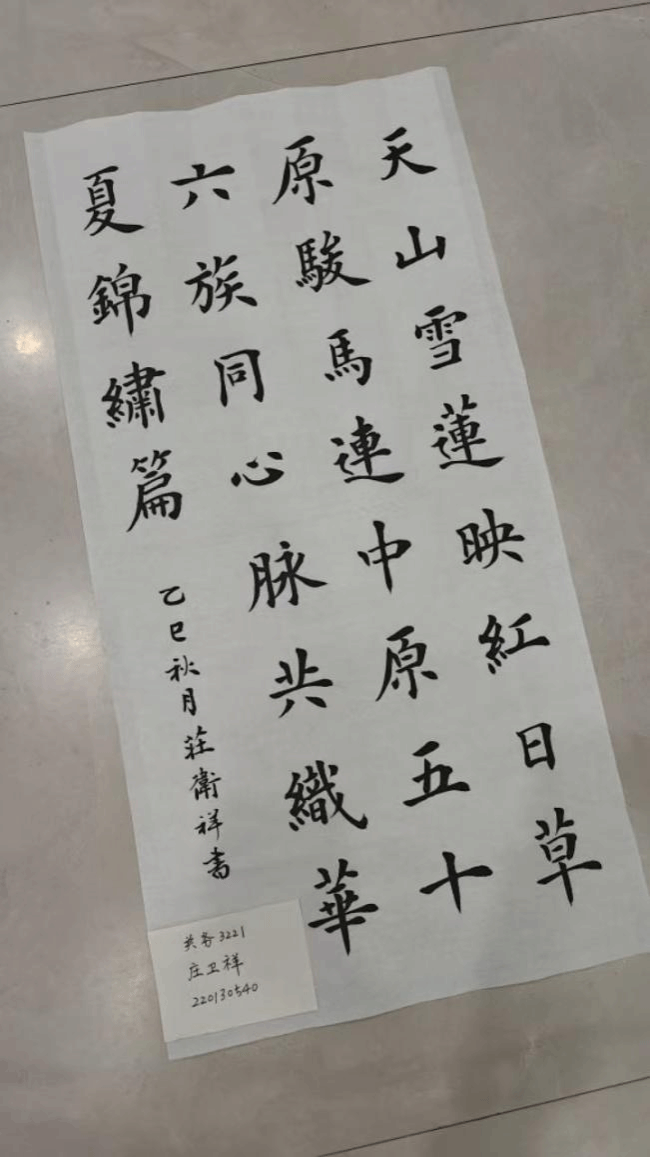 天山雪蓮映紅日草
原駿馬連中原五十
六族同心脉共織華
夏錦繡篇
乙巳秋月莊衛祥書
英务3221
庄卫祥
220130540